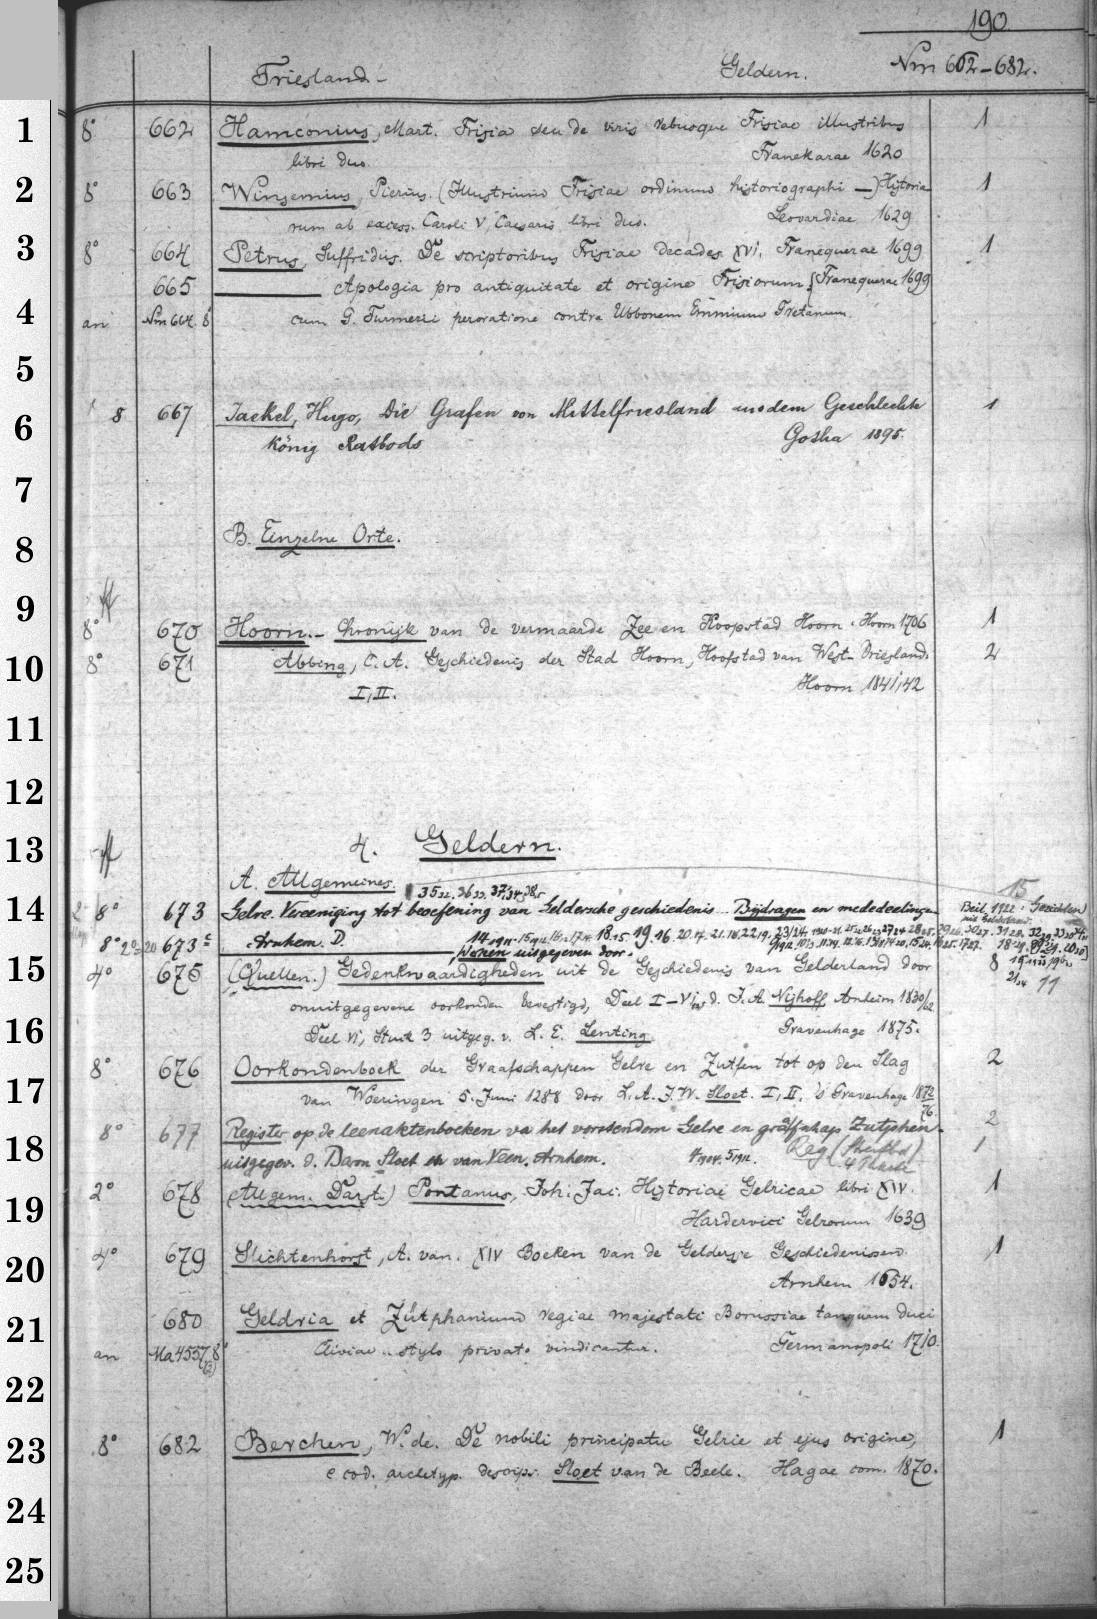 190
Friesland - Geldern. Nrn 662-682.
1 8° 662 Hamconius, Mart. Frisia seu de viris rebusque Frisiae illustribus 1
libri duo. Franekarae 1620
2 8° 663 Winsemius, Pierius. (Illustrium Frisiae ordinum historiographi —) Historia- 1
rum ab excess. Caroli V, Caesaris libri duo. Leovardiae 1629
3 8° 664 Petrus, Suffridus. De scriptoribus Frisiae decades XVI. Franequerae 1699 1
665 Apologia pro antiquitate et origine Frisiorum. Franequerae 1699
4 an Nrn 664. 8° cum G. Turmerii peroratione contra Ubbonem Emmium
5
6 8 667 Jaekel, Hugo, Die Grafen von Mittelfriesland aus dem Geschlechte 1
König Ratbods Gotha 1895.
7
8 B. Einzelne Orte.
9
8° 670 Hoorn. - Chronijk van de vermaarde Zee en Koopstad Hoorn. Hoorn 1706 1
10 8° 671 Abbing, C. A. Geschiedenis der Stad Hoorn, Hoofstad van West-Vriesland. 2
I, II. Hoorn 1841/42
11
12
13 4. Geldern.
A. Allgemeines. 35 22. 36 33. 37 34. 38 15
14 8° 673 Gelre. Vereeniging tot beoefening van Geldersche geschiedenis. Bijdragen en mededeelingen Beil. 1922
Arnhem. D.
8° 673c Werken uitgegeven door.
15 4° 675 (Quellen.) Gedenkwaardigheden uit de Geschiedenis van Gelderland door 11
onuitgegevene oorkonden bevestigd, Deel I-VI d. J. A. Nijhoff Arnheim 1830/62
16 Deel VI, Stuk 3 uitgeg. v. L. E. Lenting. Gravenhage 1875.
8° 676 Oorkondenboek der Graafschappen Gelre en Zutfen tot op den Slag 2
17 van Woeringen 5. Juni 1288 door L. A. J. W. Sloet. I, II. 's Gravenhage 1872/76.
8° 677 Register op de leenaktenboeken va het vorstendom Gelre en graafschap Zutphen. 2
18 uitgegev. d. Baron Sloet en van Veen. Arnhem. 4 1904. 5 1912. Reg 1
19 2° 678 (Allgem. Darst.) Pontanus, Joh. Jac. Historiae Gelricae libri XIV. 1
Hardervici Gelrorum 1639
20 4° 679 Slichtenhorst, A. van. XIV Boeken van de Geldersse Geschiedenissen. 1
Arnhem 1654.
21 680 Geldria et Zütphanium regiae majestati Borussiae tanquam duci
an Ma 4557, 8° Cliviae .. stylo privato vindicantur. Germanopoli 1710.
22
23 8° 682 Berchen, W. de. De nobili principatu Gelrie et ejus origine, 1
e cod. archetyp. descrips. Sloet van de Beele. Hagae com. 1870.
24
25